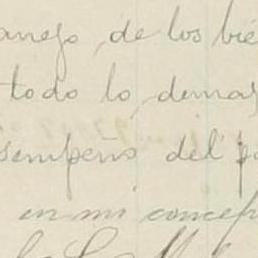 anejo, de los bie
todo lo demas
sempeño del p
en mi concep